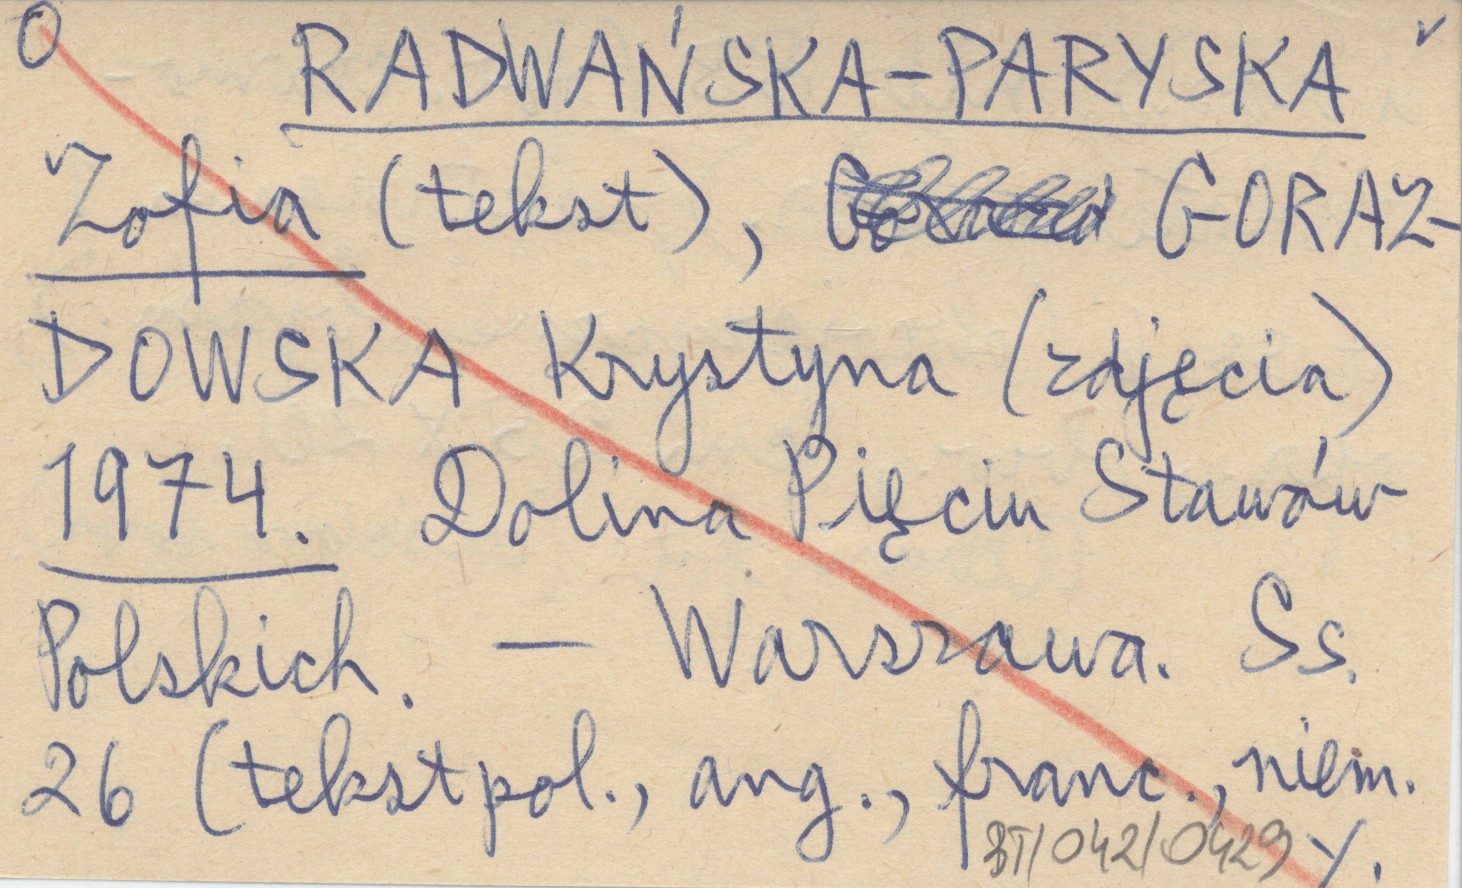 O RADWAŃSKA-PARYSKA
Zofia (tekst), GORAZ-
DOWSKA Krystyna (zdjęcia)
1974. Dolina Pięciu Stawów
Polskich. — Warszawa. Ss.
26 (tekst pol., ang., franc., niem.
BT/042/0429 /.